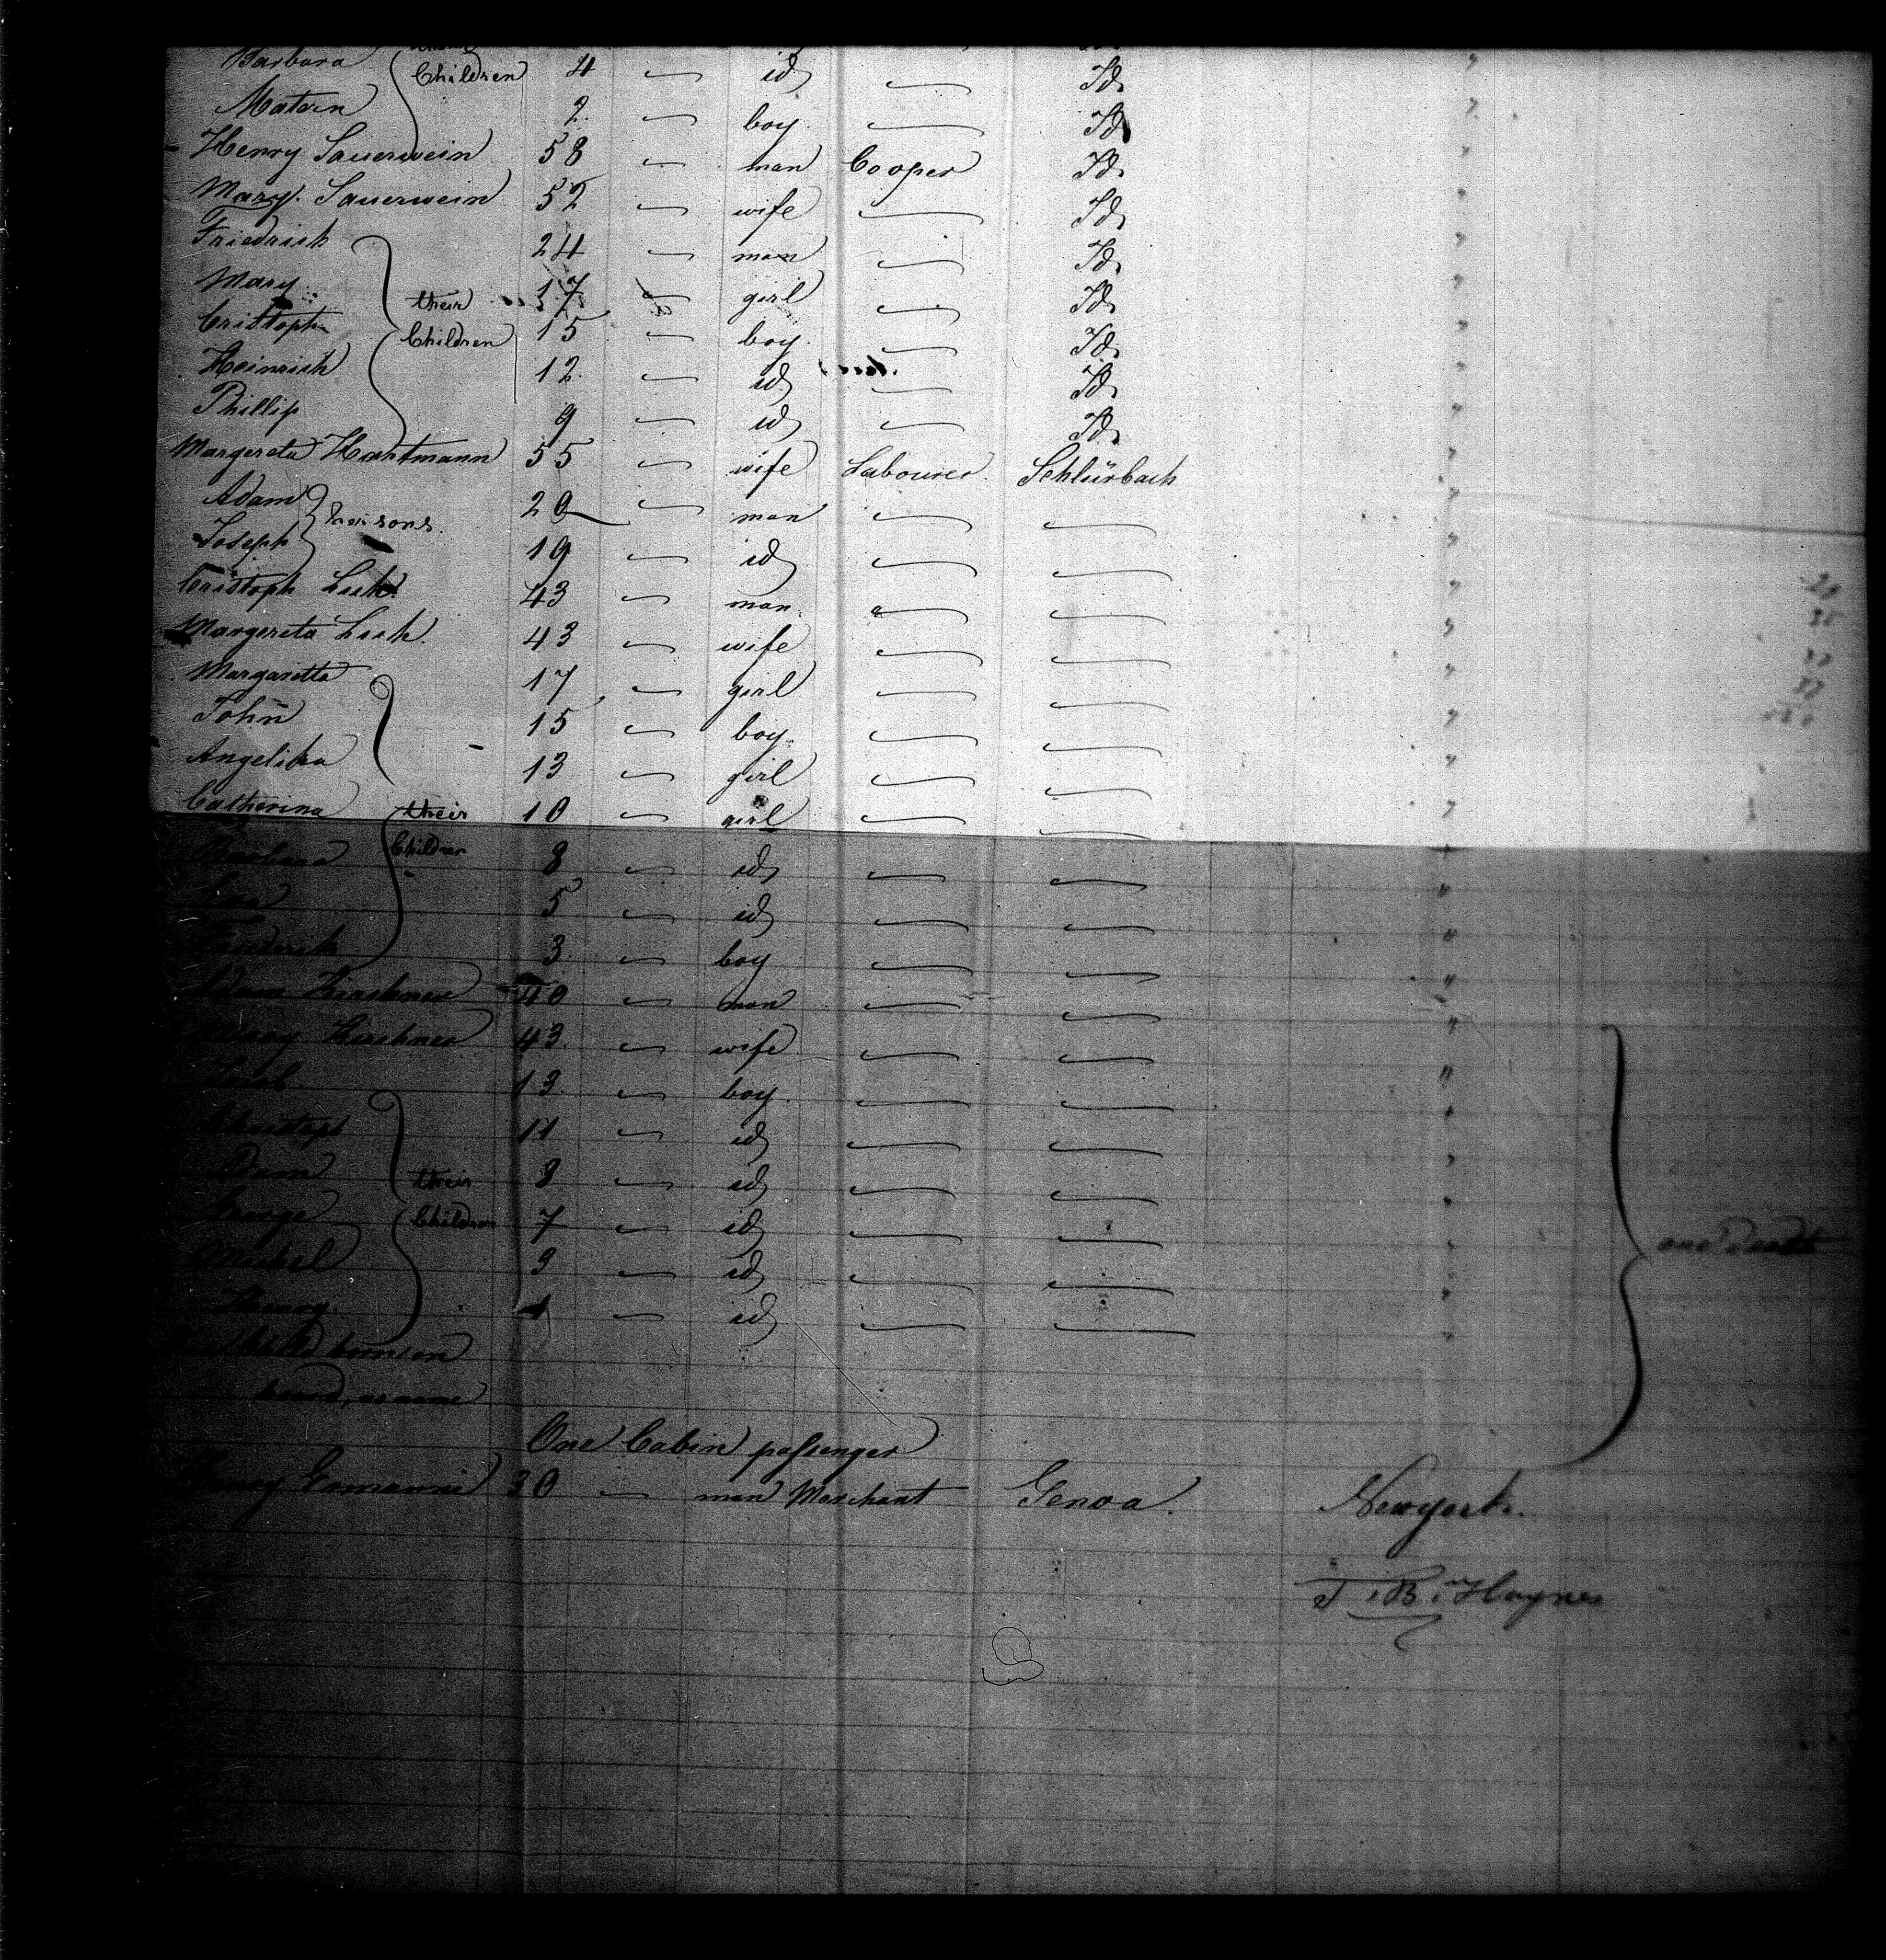 Barbara Children 4 id Id
2 boy Id
Henry Sauerwein 58 man Cooper Id
Mary Sauerwein 52 wife Id
Friedrich 24 man Id
Mary their 17 girl Id
Cristoph Children 15 boy Id
Heinrich 12 id Id
Phillip 9 id Id
Margereta 55 wife Labourer Schlürbach
Adam sons 20 man
Joseph 19 id
Cristoph 43 man
Margereta 43 wife
Margaretta 17 girl
John 15 boy
Angelika 13 girl
Catherina their 10 girl
Barbara Children 8 id
Eva 5 id
Friederich 3 boy
Adam Kirschner 40 man
Mary Kirschner 43 wife
13 boy
Christoph 11 id
Adam their 8 id
George Children 7 id
Michel 3 id
Henry id
One Child born on
board, no name
One Cabin passenger
Henry 30 man Merchant Genoa Newyork.
T. B. Haynes